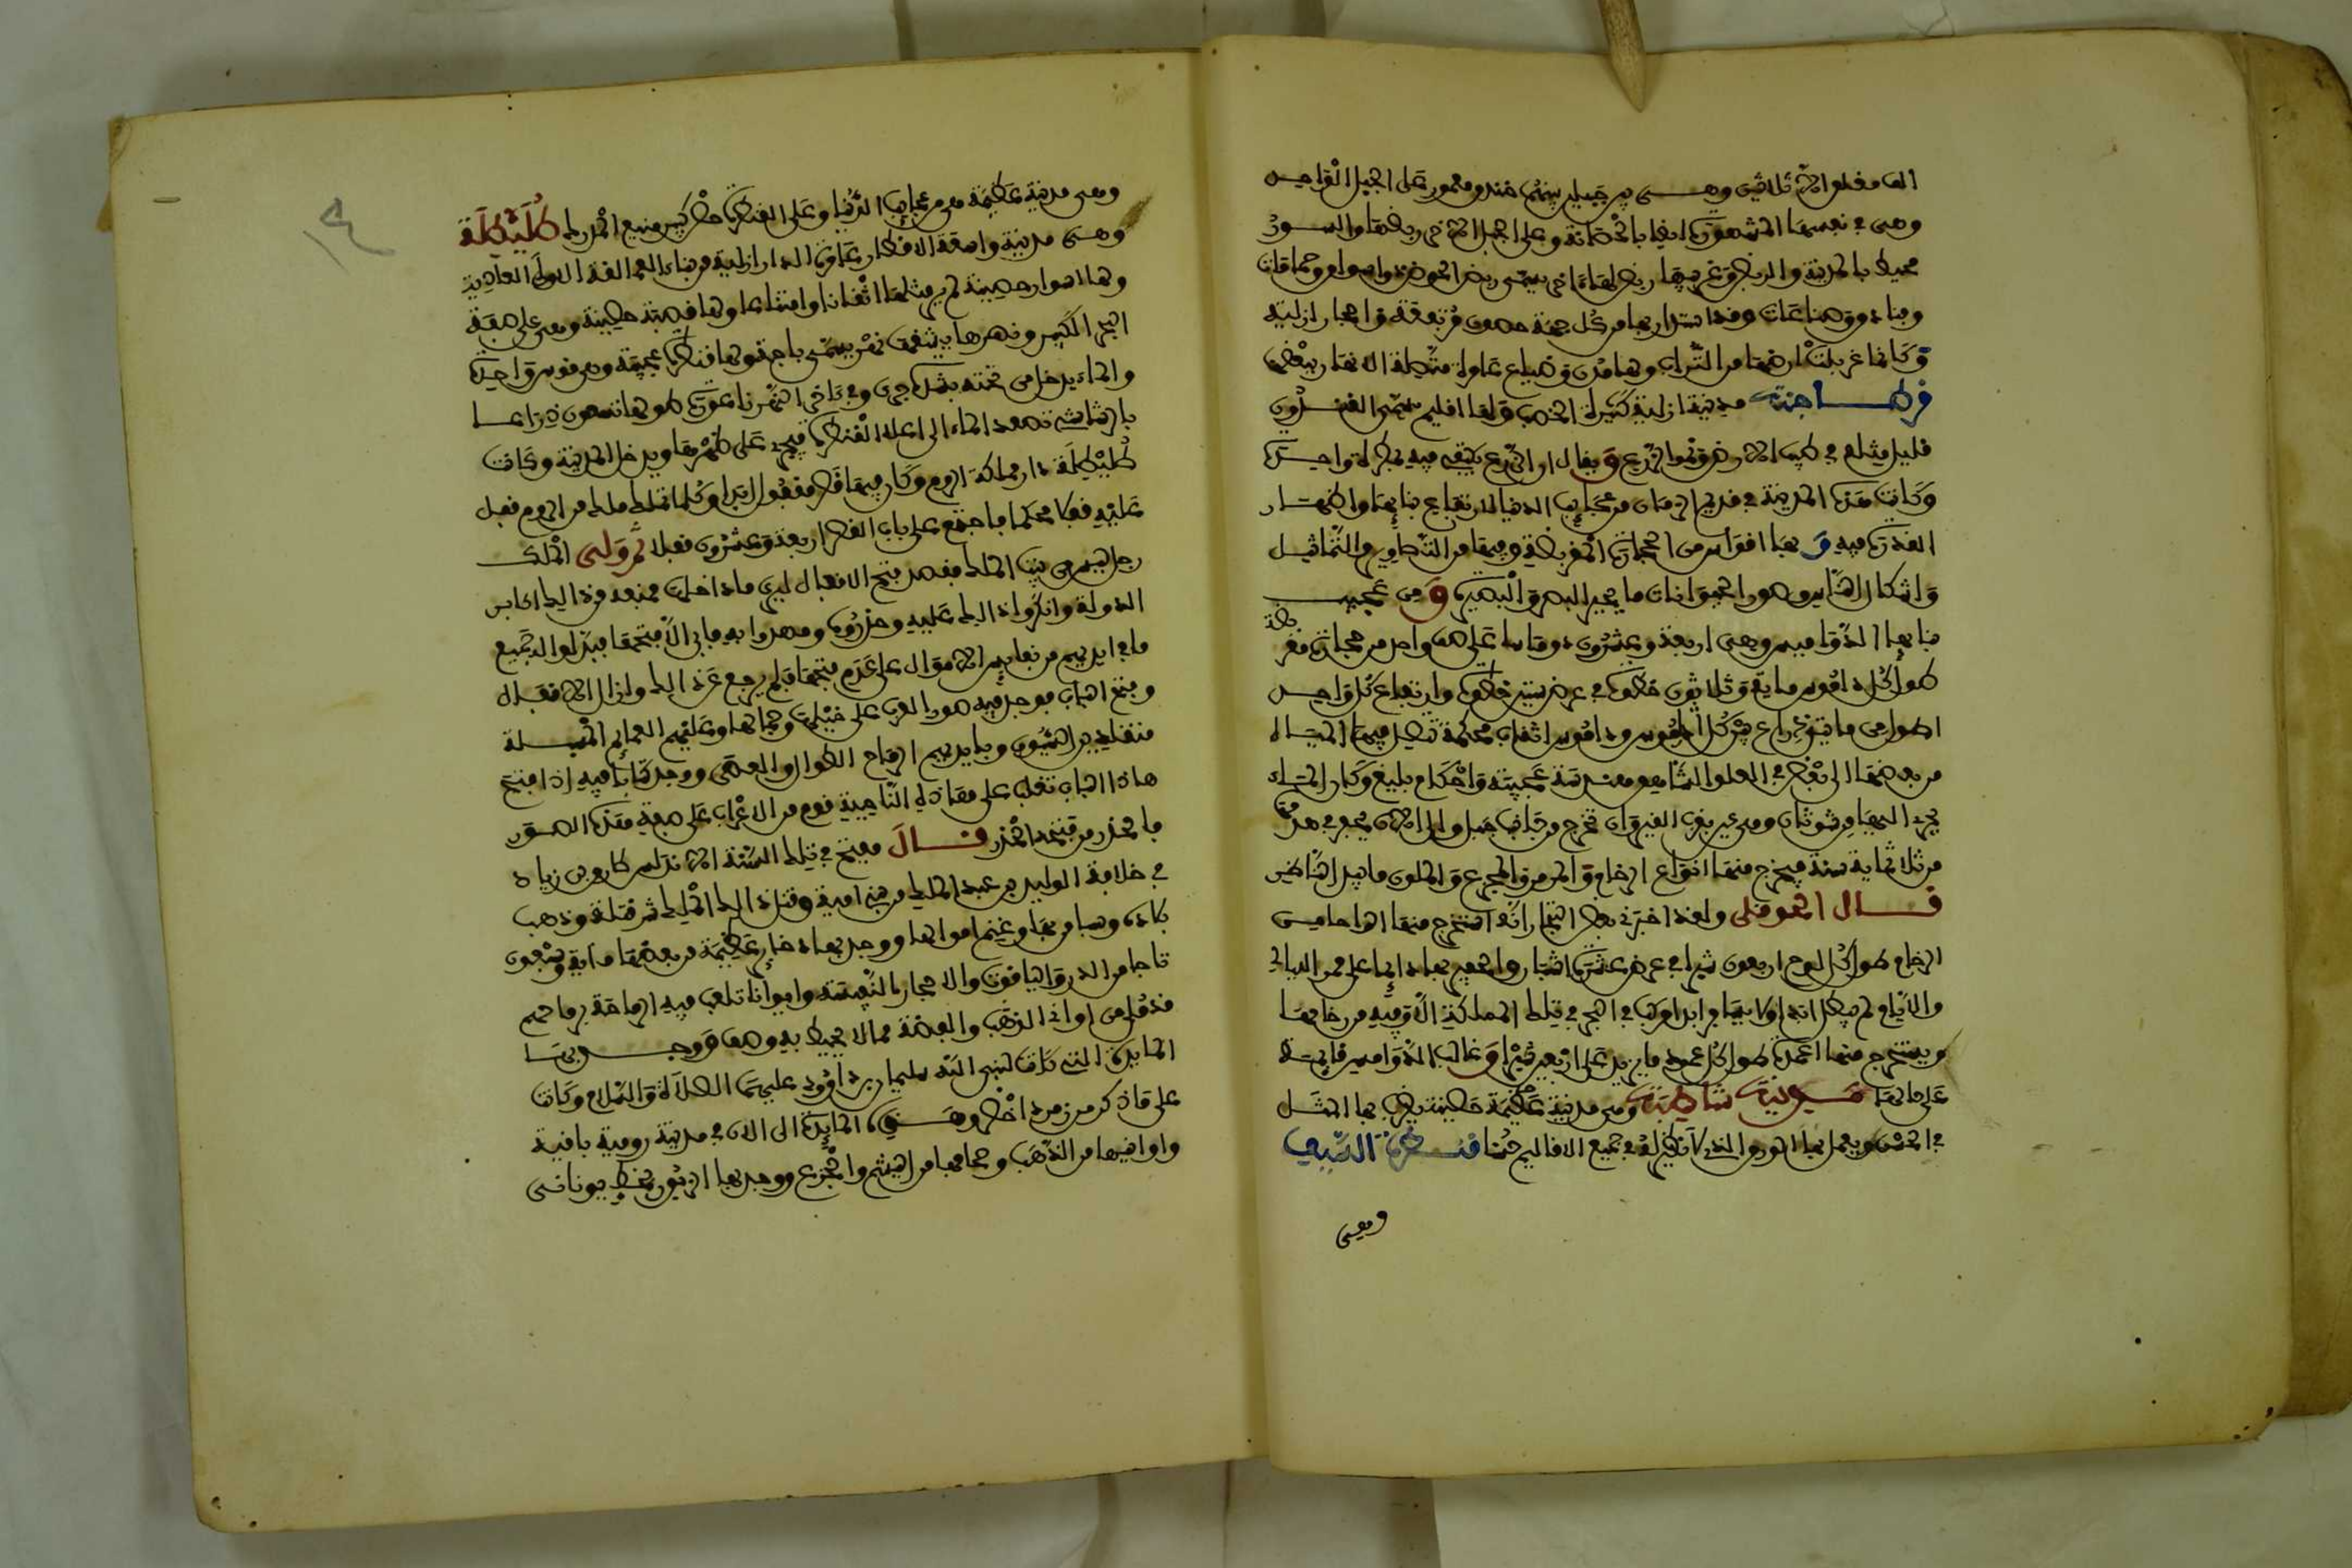 الف مقلوا الآن ثلاثين وهى بين جبلين بينهما خندق معمور على الجبل الواحد
وهى في نفسها المشهورة ايضا بالحصانة وعلى الجبل الاخر ربضها والسور
محيط بالمدينة والربض وغربيها ربض لها اخر يسمى ربض الحوض ذو اسواق وحمامات
وفنادق وصناعات وقد استدار بها من كل جهة حصون مرتفعة واحجار ازلية
وكانما غربلت ارضها من التراب ولها مدن وضياع عامرة متصلة الانهار ببعض
قرطاجنة مدينة ازلية كثيرة الخصب ولها اقليم يسمى الفندون
قليل مثله في طيب الارض ونمو الزرع ويقال ان الزرع يكفيه فيه مطرة واحدة
وكانت هذه المدينة في قديم الزمان من عجايب الدنيا لارتفاع بنايها واظهار
القدرة فيه وبها اقواس من الحجارة المقربصة وفيها من التصاوير والتماثيل
واشكال الناس وصور الحيوانات ما يحير البصر والبصيرة ومن عجيب
بنايها الدواميس وهى اربعة وعشرون داموسا على صف واحد من حجارة مقربصة
طول كل داموس ماية وثلاثون خطوة في عرض ستين خطوة وارتفاع كل واحد
اطول من مايتى ذراع بين كل داموس وداموس اثقاب محكمة تصل فيها المياه
من بعضها الى بعض في العلو الشاهق بهندسة عجيبة واحكام بليغ وكان الماء
يجرى اليها من شوتان وهى عين بقرب القيروان تخرج من جانب جبل والى الان يحفر في هدمها
من ثلاثماية سنة فيخرج منها انواع الرخام والمرمر والجزع والملون ما يبهر الناظر
قال الجواليقى ولقد اخبرنى بعض التجار انه استخرج منها الواحا من
الرخام طول كل لوح اربعون شبرا في عرض عشرة اشبار والحفير بها دايما على ممر الليالى
والايام لم يبطل ابدا ولا يسافر ابدا مركب في البحر في تلك المملكة الا وفيه من رخامها
ويستخرج منها اعمدة طول كل عمود ما يزيد على اربعين شبرا وغالب الدواميس قايمة
على حالها مدينة شاطبة وهى مدينة عظيمة حصينة يضرب بها المثل
في الحسن ويعمل بها الورق الذى لا نظير له في جميع الاقاليم حسنا قنطرة السيف
وهى
وهى مدينة عظيمة وهى من عجايب الدنيا وعلى القنطرة حصن كبير منيع الدرك طليطلة
وهى مدينة واسعة الاقطار عامرة الديار ازلية من بناء العمالقة الاولى العادية
ولها اسوار حصينة لم ير مثلها اتقانا وامتناعا ولها قصبة حصينة وهى على ضفة
النهر الكبير ونهرها يشقها نهر يسمى باجة ولها قنطرة عجيبة وهى قوس واحدة
والماء يدخل من تحته بشدة جرى وفي اخر النهر ناعورة طولها تسعون ذراعا
بالرشاشى تصعد الماء الى اعلا القنطرة فيجرى على ظهرها ويدخل المدينة وكانت
طليطلة دار مملكة الروم وكان فيها قصر مقفول ابدا وكلما تملك ملك من الروم قفل
عليه قفلا محكما فاجتمع على باب القصر اربعة وعشرون قفلا ثم ولى الملك
رجل ليس من بيت الملك فقصد فتح الاقفال ليرى ما داخله فمنعه من ذلك اكابر
الدولة وانكروا ذلك عليه وحذروه وجهدوا به فابى الا فتحها فبذلوا له جميع
ما في ايديهم من نفايس الاموال على عدم فتحها فلم يرجع عن ذلك وازال الاقفال
وفتح الباب فوجد فيه صور العرب على خيلها وجمالها وعليهم العمايم المسبلة
متقلدين السيوف وبايديهم الرماح الطوال والعصى ووجد كتابا فيه اذا فتح
هاذا الباب تغلب على هاذه الناحية قوم من الاعراب على صفة هذه الصور
فالحذر من فتحه الحذر قال ففتح في تلك السنة الاندلس طارق بن زياد
في خلافة الوليد بن عبد الملك من بنى امية وقتل ذلك الملك شر قتلة وذهب
بلاده وسبا من بها وغنم اموالها ووجد بها ذخاير عظيمة من بعضها ماية وسبعون
تاجا من الدر والياقوت والاحجار النفيسة وايوانا تلعب فيه الرماحة برماحهم
قد ملى من اوانى الذهب والفضة مما لا يحيط به وصف ووجد بها
المايدة التى كانت لنبى الله سليمان بن داوود عليهما الصلاة والسلام وكانت
على ما ذكر من زمرد اخضر وهذه المايدة الى الان في مدينة رومية باقية
واوانيها من الذهب وصحافها من اليشم والجزع ووجد بها الزبور بخط يونانى
١٤